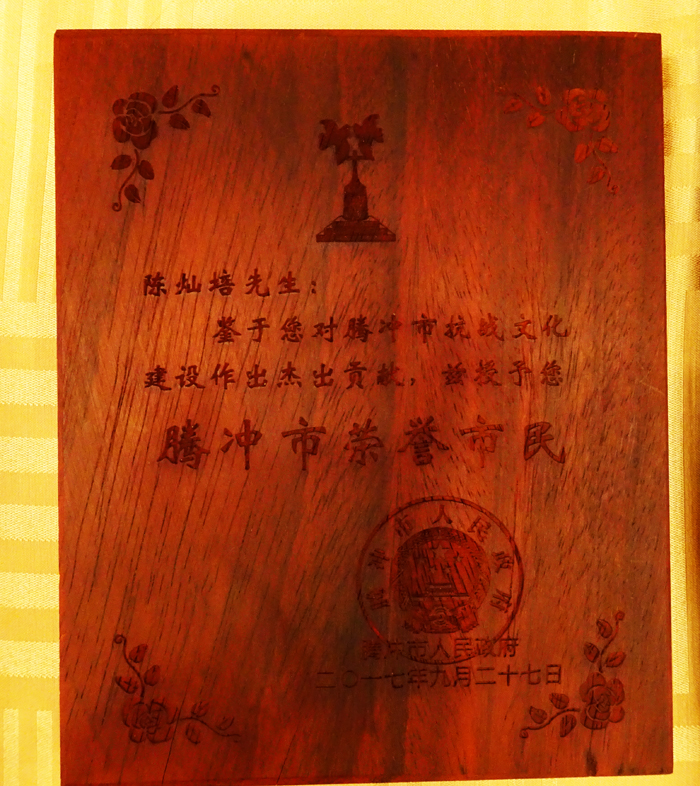 陈灿培先生：
鉴于您对腾冲市抗战文化
建设作出杰出贡献，兹授予您
腾冲市荣誉市民
腾冲市人民政府
腾冲市人民政府
二〇一七年九月二十七日